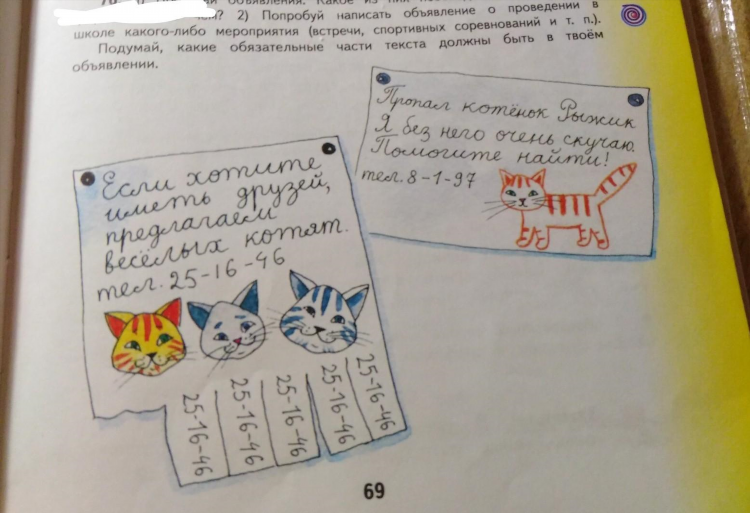 объявления. Какое из них
2) Попробуй написать объявление о проведении в
школе какого-либо мероприятия (встречи, спортивных соревнований и т. п.).
Подумай, какие обязательные части текста должны быть в твоём
объявлении.
Пропал котёнок Рыжик
Я без него очень скучаю.
Помогите найти!
тел. 8-1-97
Если хотите
иметь друзей,
предлагаем
весёлых котят.
тел. 25-16-46
25-16-46
25-16-46
25-16-46
25-16-46
25-16-46
69